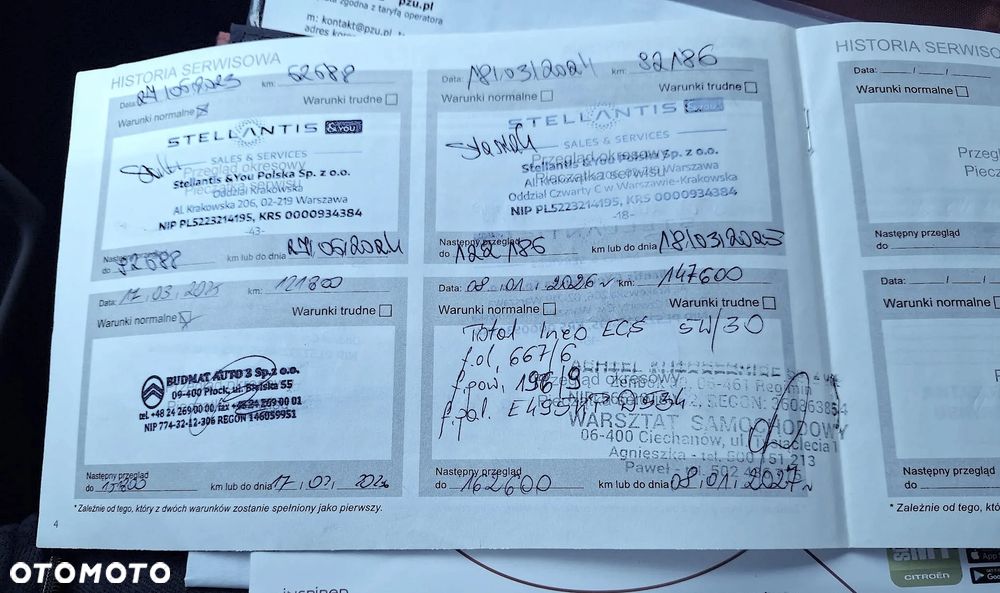 zgodna z taryfą operatora
pzu.pl
m: kontakt@pzu.pl
HISTORIA SERWISOWA
Data: 27/05/2023 km: 62688
Warunki normalne Warunki trudne
STELLANTIS &YOU
SALES & SERVICES
Przegląd okresowy
Stellantis &You Polska Sp. z o.o.
Pieczątka serwisu
Oddział Krakowska
Al. Krakowska 206, 02-219 Warszawa
NIP PL5223214195, KRS 0000934384
-43-
Następny przegląd
do 92688 km lub do dnia 27/05/2024
Data: 18/03/2024 km: 92186
Warunki normalne Warunki trudne
STELLANTIS &YOU
SALES & SERVICES
Przegląd okresowy
Stellantis &You Polska Sp. z o.o.
Pieczątka serwisu
Al. Krakowska Warszawa
Oddział Czwarty C w Warszawie-Krakowska
NIP PL5223214195, KRS 0000934384
-18-
Następny przegląd
do 122186 km lub do dnia 18/03/2025
Data: 17.03.2025 km: 121800
Warunki normalne Warunki trudne
BUDMAT AUTO 2 Sp. z o.o.
09-400 Płock, ul. Bielska 55
tel. +48 24 269 00 00, fax +48 24 269 00 01
NIP 774-32-12-306 REGON 146059951
Następny przegląd
do km lub do dnia 17.03. 2026
Data: 08.01.2026 km: 147600
Warunki normalne Warunki trudne
Total Ineo ECS 5W/30
f.ol. 667/6
f.pow. 196/9
Przegląd okresowy
f.pal.
WARSZTAT SAMOCHODOWY
06-400 Ciechanów, ul.
Agnieszka - tel. 500 151 213
Paweł - tel. 502
Następny przegląd
do 162600 km lub do dnia 08.01.2027
* Zależnie od tego, który z dwóch warunków zostanie spełniony jako pierwszy.
4
HISTORIA SERWISO
Data:
Warunki normalne
Przegl
Piecz
Następny przegląd
do
Data:
Warunki normalne
Następny przegląd
do
* Zależnie od tego, kt
CITROËN
OTOMOTO